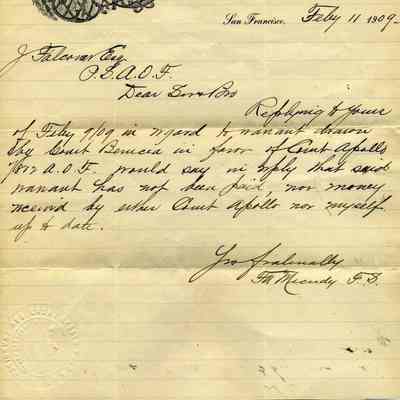 San Francisco, Feby 11 1909
J Falconer Esq
P.S.A.O.F.
Dear Sir & Bro
Replying to yours
of Feby 9/09 in regard to warrant drawn
by Court Benicia in favor of Court Apollo
A.O.F. would say in reply that said
warrant has not been paid, nor money
received by either Court Apollo nor myself
up to date.
Yrs fraternally
F.S.